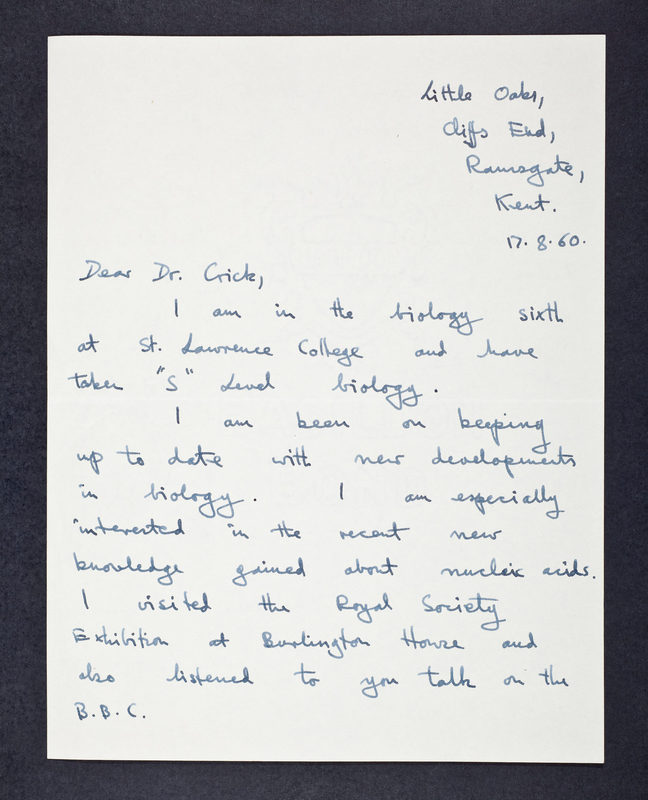 Little Oaks,
Cliffs End,
Ramsgate,
Kent.
17.8.60.
Dear Dr. Crick,
I am in the biology sixth
at St. Lawrence College and have
taken "S" Level biology.
I am keen on keeping
up to date with new developments
in biology. I am especially
interested in the recent new
knowledge gained about nucleic acids.
I visited the Royal Society
Exhibition at Burlington House and
also listened to you talk on the
B.B.C.